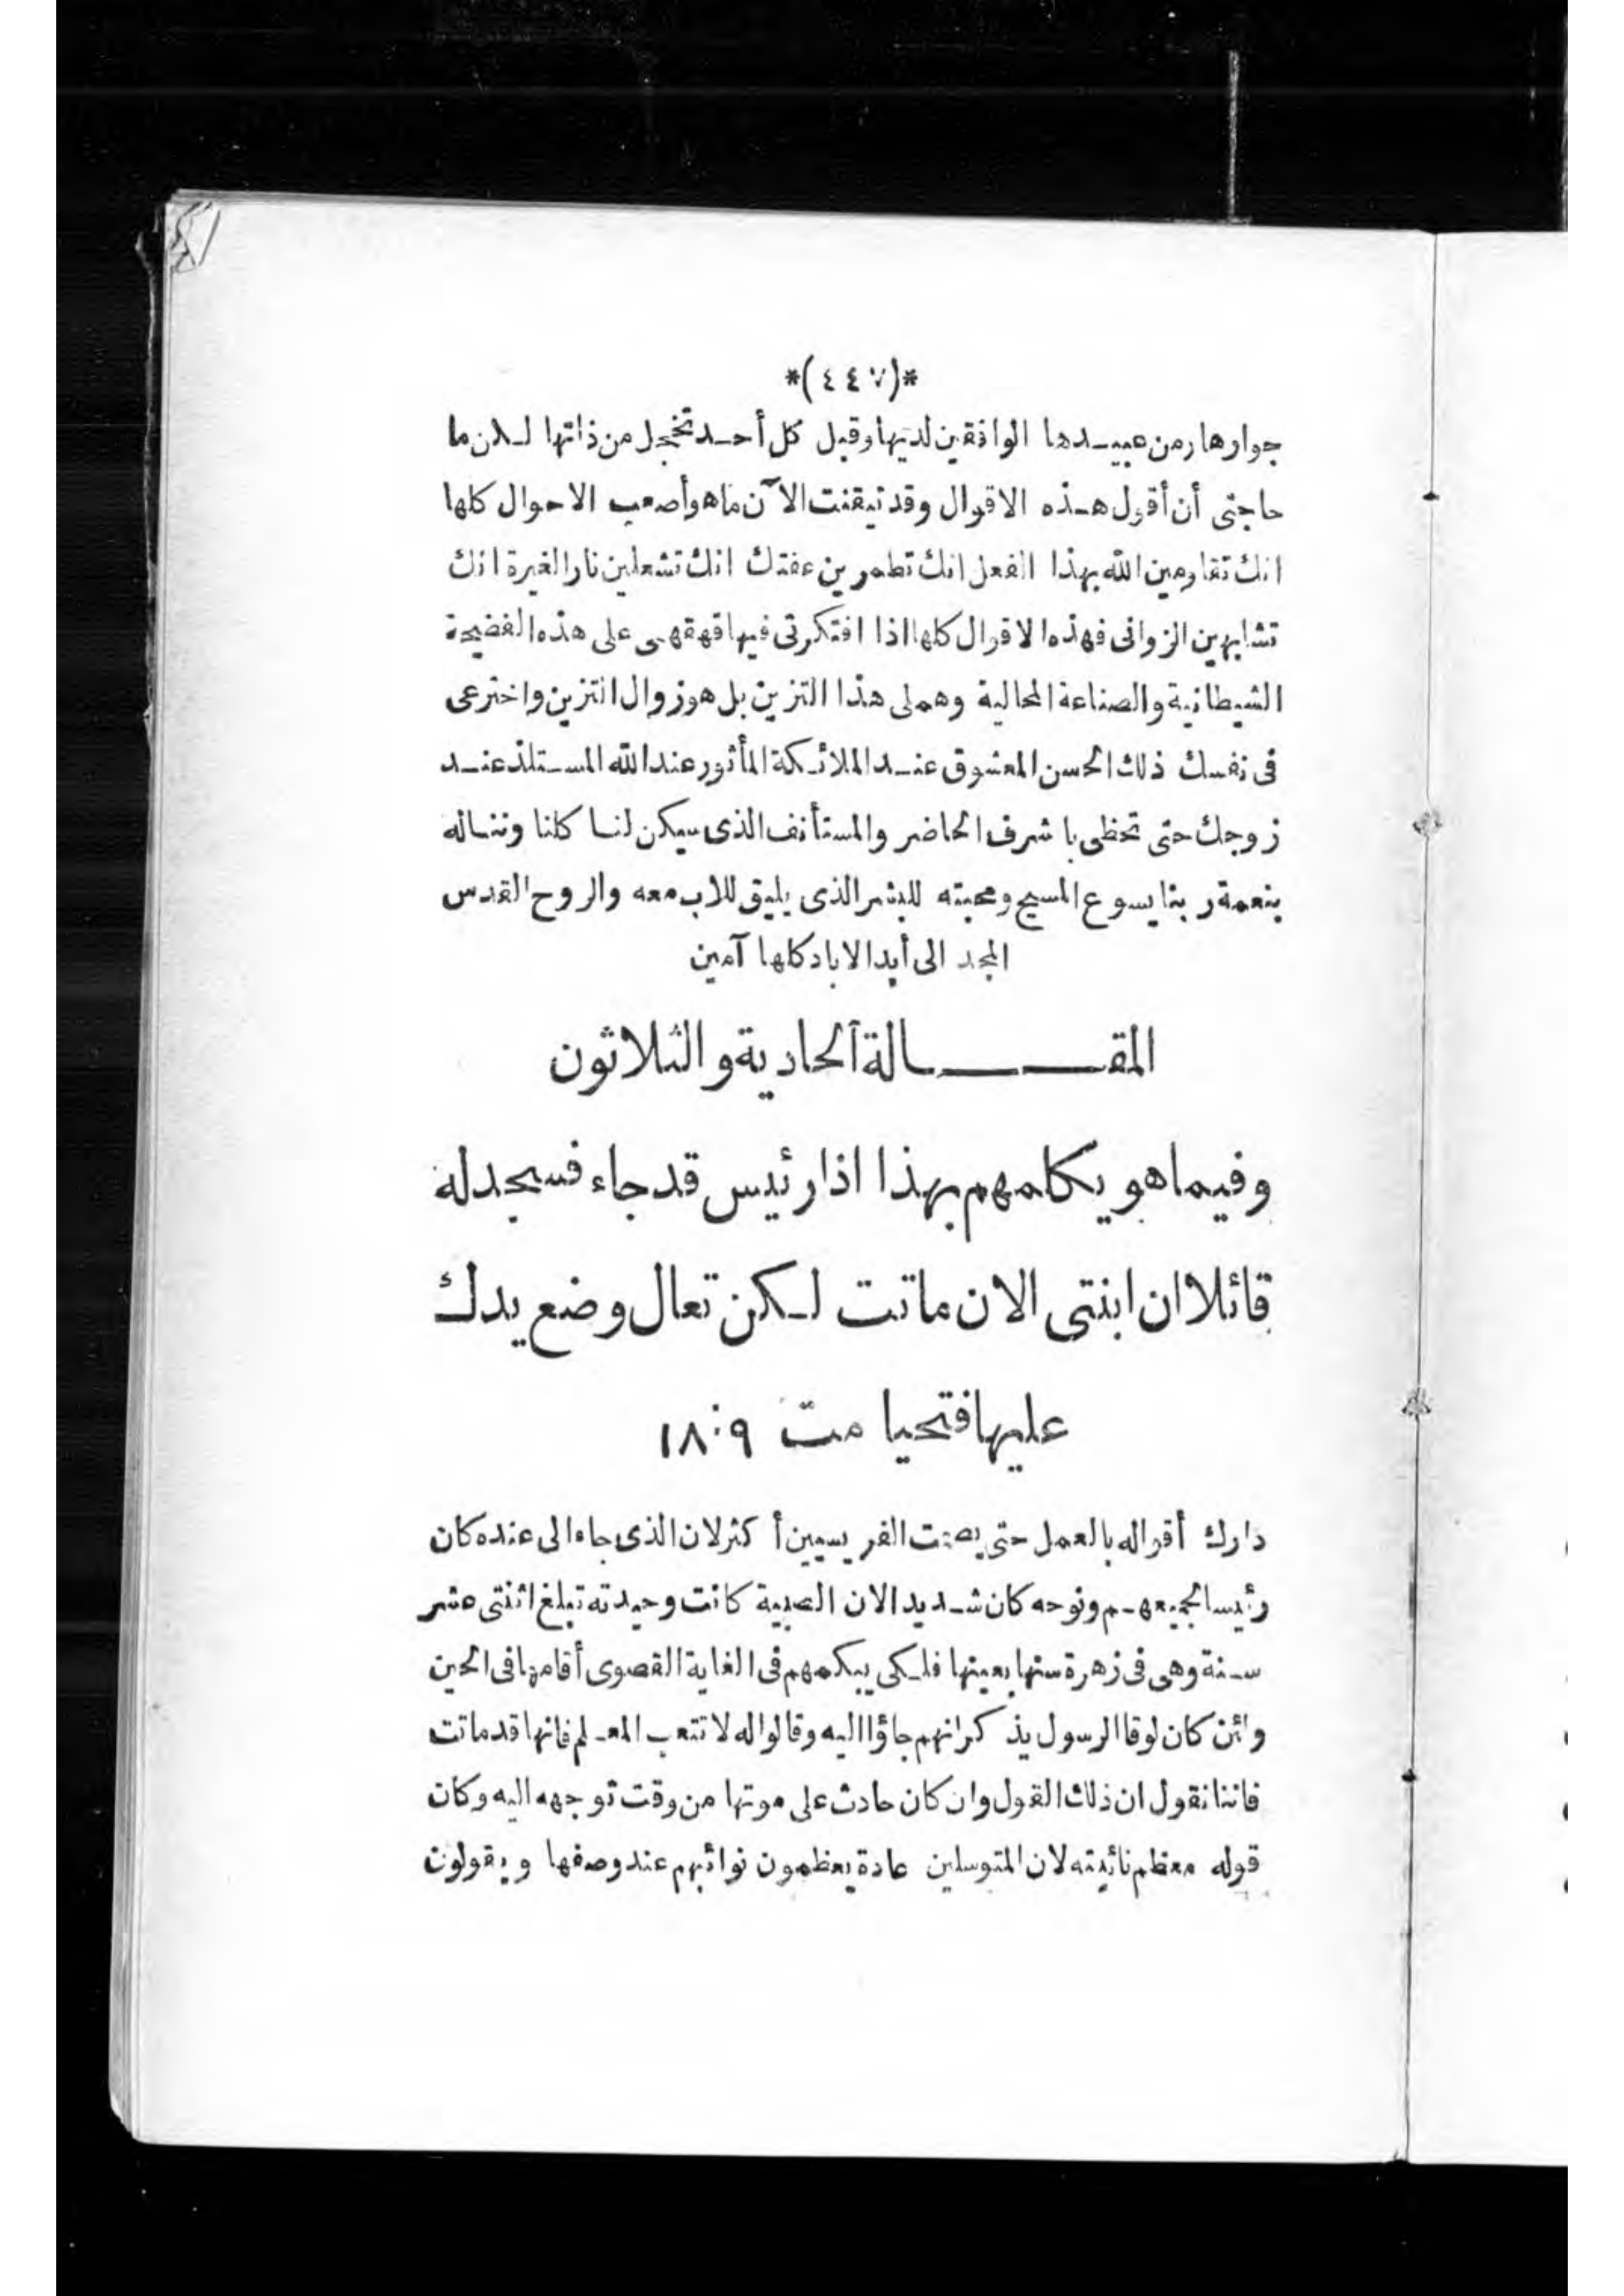 *(٤٤٧)*
جوارها ومن عبيدها الواقفين لديها وقبل كل أحد تخجل من ذاتها لكن ما
حاجتى أن أقول هذه الاقوال وقد تيقنت الآن ما هو أصعب الاحوال كلها
انك تقاومين الله بهذا الفعل انك تطمرين عفتك انك تشعلين نار الغيرة انك
تشابهين الزوانى فهذه الاقوال كلها اذا افتكرتى فيها قهقهى على هذه الفضيحة
الشيطانية والصناعة المحالية وهملى هذا التزين بل هو زوال التزين واخترعى
فى نفسك ذلك الحسن المعشوق عند الملائكة المأثور عند الله المستلذ عند
زوجك حتى تحظى باشرف الحاضر والمستأنف الذى سيكن لنا كلنا ونناله
بنعمة ربنا يسوع المسيح ومحبته للبشر الذى يليق للاب معه والروح القدس
المجد الى أبد الاباد كلها آمين
المقالة الحادية والثلاثون
وفيما هو يكلمهم بهذا اذا رئيس قد جاء فسجد له
قائلا ان ابنتى الان ماتت لكن تعال وضع يدك
عليها فتحيا مت ٩:١٨
دارك أقواله بالعمل حتى يصمت الفريسيين أكثر لان الذى جاء الى عنده كان
رئيسا لجميعهم ونوحه كان شديد الان الصبية كانت وحيدته تبلغ اثنتى عشر
سنة وهى فى زهرة سنها بعينها فلكى يبكمهم فى الغاية القصوى أقامها فى الحين
وائن كان لوقا الرسول يذكر انهم جاؤا اليه وقالوا له لا تتعب المعلم فانها قد ماتت
فاننا نقول ان ذلك القول وان كان حادث على موتها من وقت توجهه اليه وكان
قوله معظم نائبته لان المتوسلين عادة يعظمون نوائبهم عند وصفها ويقولون